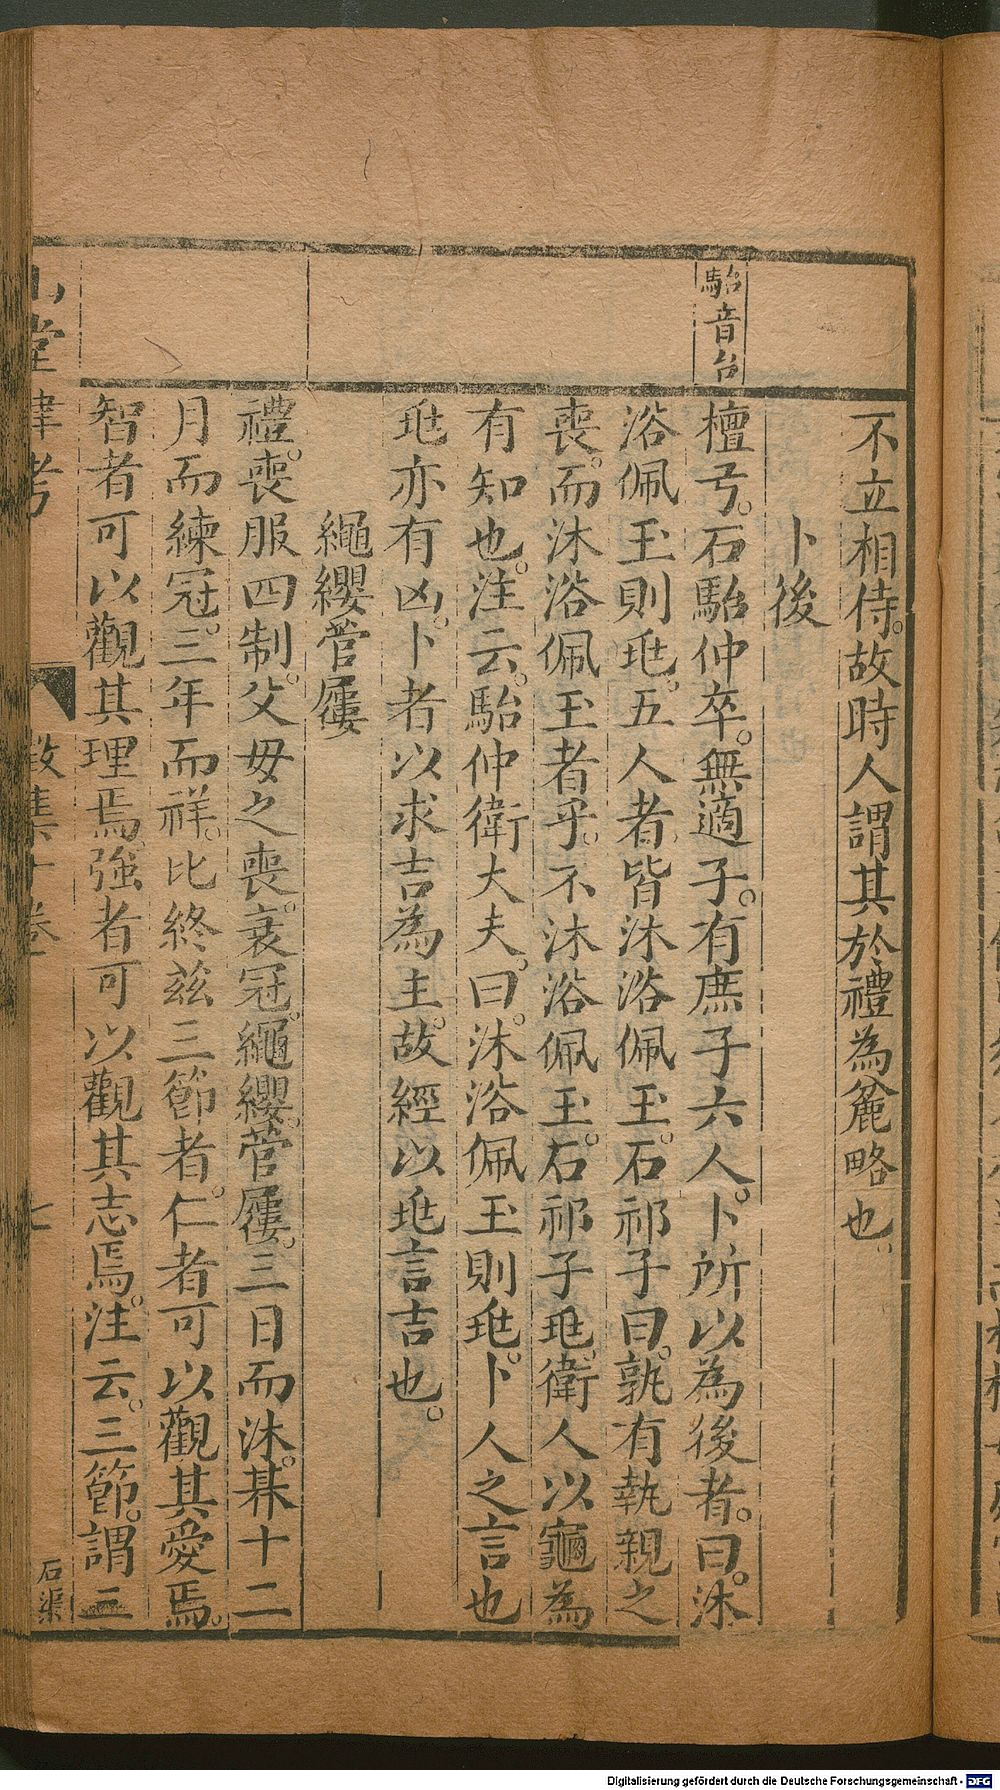 不立相待。故時人謂其於禮為麄略也。
卜後
駘音台
檀弓。石駘仲卒。無適子。有庶子六人。卜所以為後者。曰。沐
浴佩玉則𠧧。五人者皆沐浴佩玉。石祁子曰。孰有執親之
喪。而沐浴佩玉者乎。不沐浴佩玉。石祁子𠧧。衛人以龜為
有知也。注云。駘仲衛大夫。曰。沐浴佩玉則𠧧。卜人之言也
𠧧亦有凶。卜者以求吉為主。故經以𠧧言吉也。
繩纓菅屨
禮。喪服四制。父母之喪。衰冠。繩纓。菅屨。三日而沐。朞十二
月而練冠。三年而祥。比終玆三節者。仁者可以觀其愛焉。
智者可以觀其理焉。強者可以觀其志焉。注云。三節。謂三
山堂肆考
徵集十卷
七
石渠
Digitalisierung gefördert durch die Deutsche Forschungsgemeinschaft - DFG